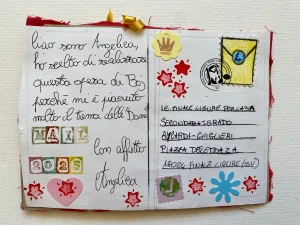 Ciao sono Angelica,
ho scelto di realizzare
questa opera di Boj
perché mi è piaciuto
molto il tema delle "Dame"
MAIL
2025
con affetto
Angelica
IC FINALE LIGURE PER LA
SECONDARIA 1 GRADO
AYCARDI-GHIGLIERI
PIAZZA
17024 FINALE LIGURE (SV)